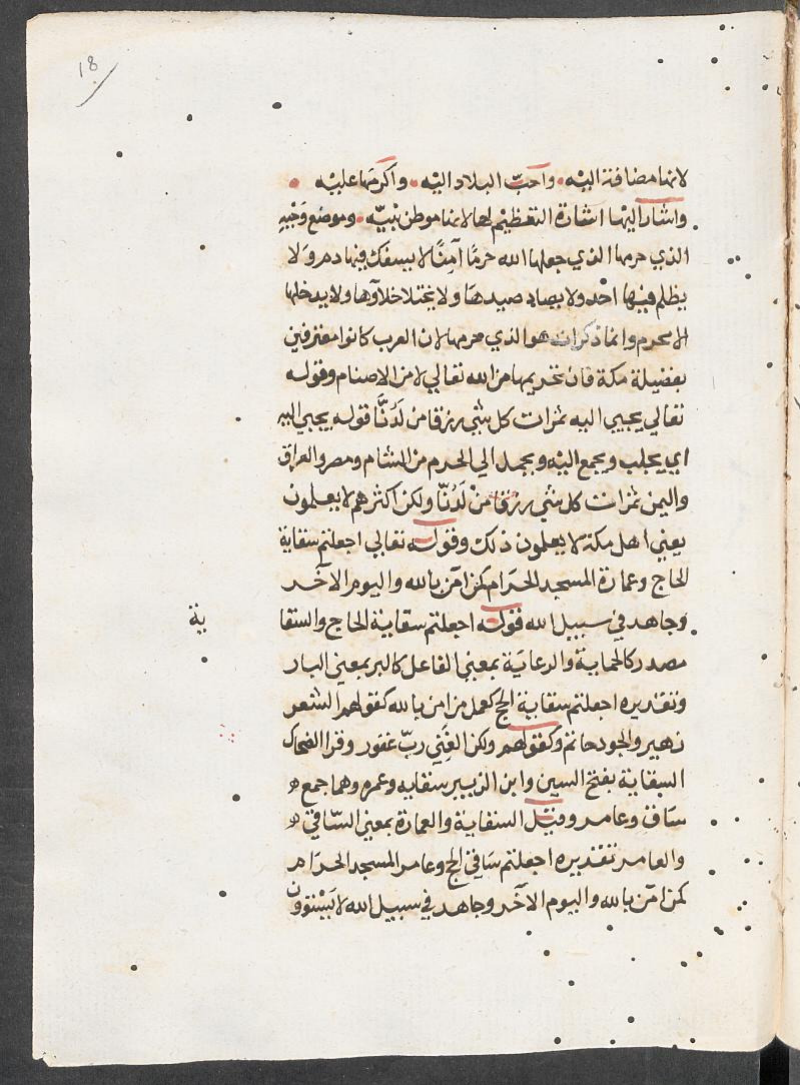 18
لانها مضافة اليه. واحبّ البلاد اليه. واكرمها عليه.
واشار اليها اشارة التعظيم لها لانها موطن نبيّه. وموضع وَحْيِه
الذي حرمها الذي جعلها الله حرمًا آمِنًا لا يسفك فيها دم وَلا
يظلم فيها احد ولا يصاد صيدها ولا يختلا خلاؤها ولا يدخلها
الا محرم وانما ذكرانه هو الذي حرمها لان العرب كانوا معترفين
بفضيلة مكة فان تحريمها من الله تعالي لا من الاصنام وقوله
تعالي يجبي اليه ثمرات كل شي رزقا من لَدُنَّا قوله يجبي اليه
اي يجلب ويجمع اليه ويحمل الي الحرم من الشام ومصر والعراق
واليمن ثمرات كل شي رزقا من لَدُنّا ولكن اكثرهم لا يعلمون
يعني اهل مكة لا يعلمون ذلك وقوله تعالي اجعلتم سقاية
الحاج وعمارة المسجد الحرام كمن آمن بالله واليوم الآخر
وجاهد في سبيل الله قوله اجعلتم سقاية الحاج والسقا
ية
مصدر كالحماية والرعاية بمعني الفاعل كالبر بمعني البار
وتقديره اجعلتم سقاية الحج كعمل من امن بالله كقولهم الشعر
زهير والجود حاتم وكقولهم ولكن الغَنِي ربّ غفور وقرا الضحاك
السقاية بفتح السين وابن الزبير سقايه وعمره وهما جمع
ساق وعامر وقيل السقاية والعمارة بمعني السّاقي
والعامر تقديره اجعلتم سَاقي الحج وعامر المسجد الحرام
كمن آمن بالله واليوم الآخر وجاهد في سبيل الله لا يَسْتوون